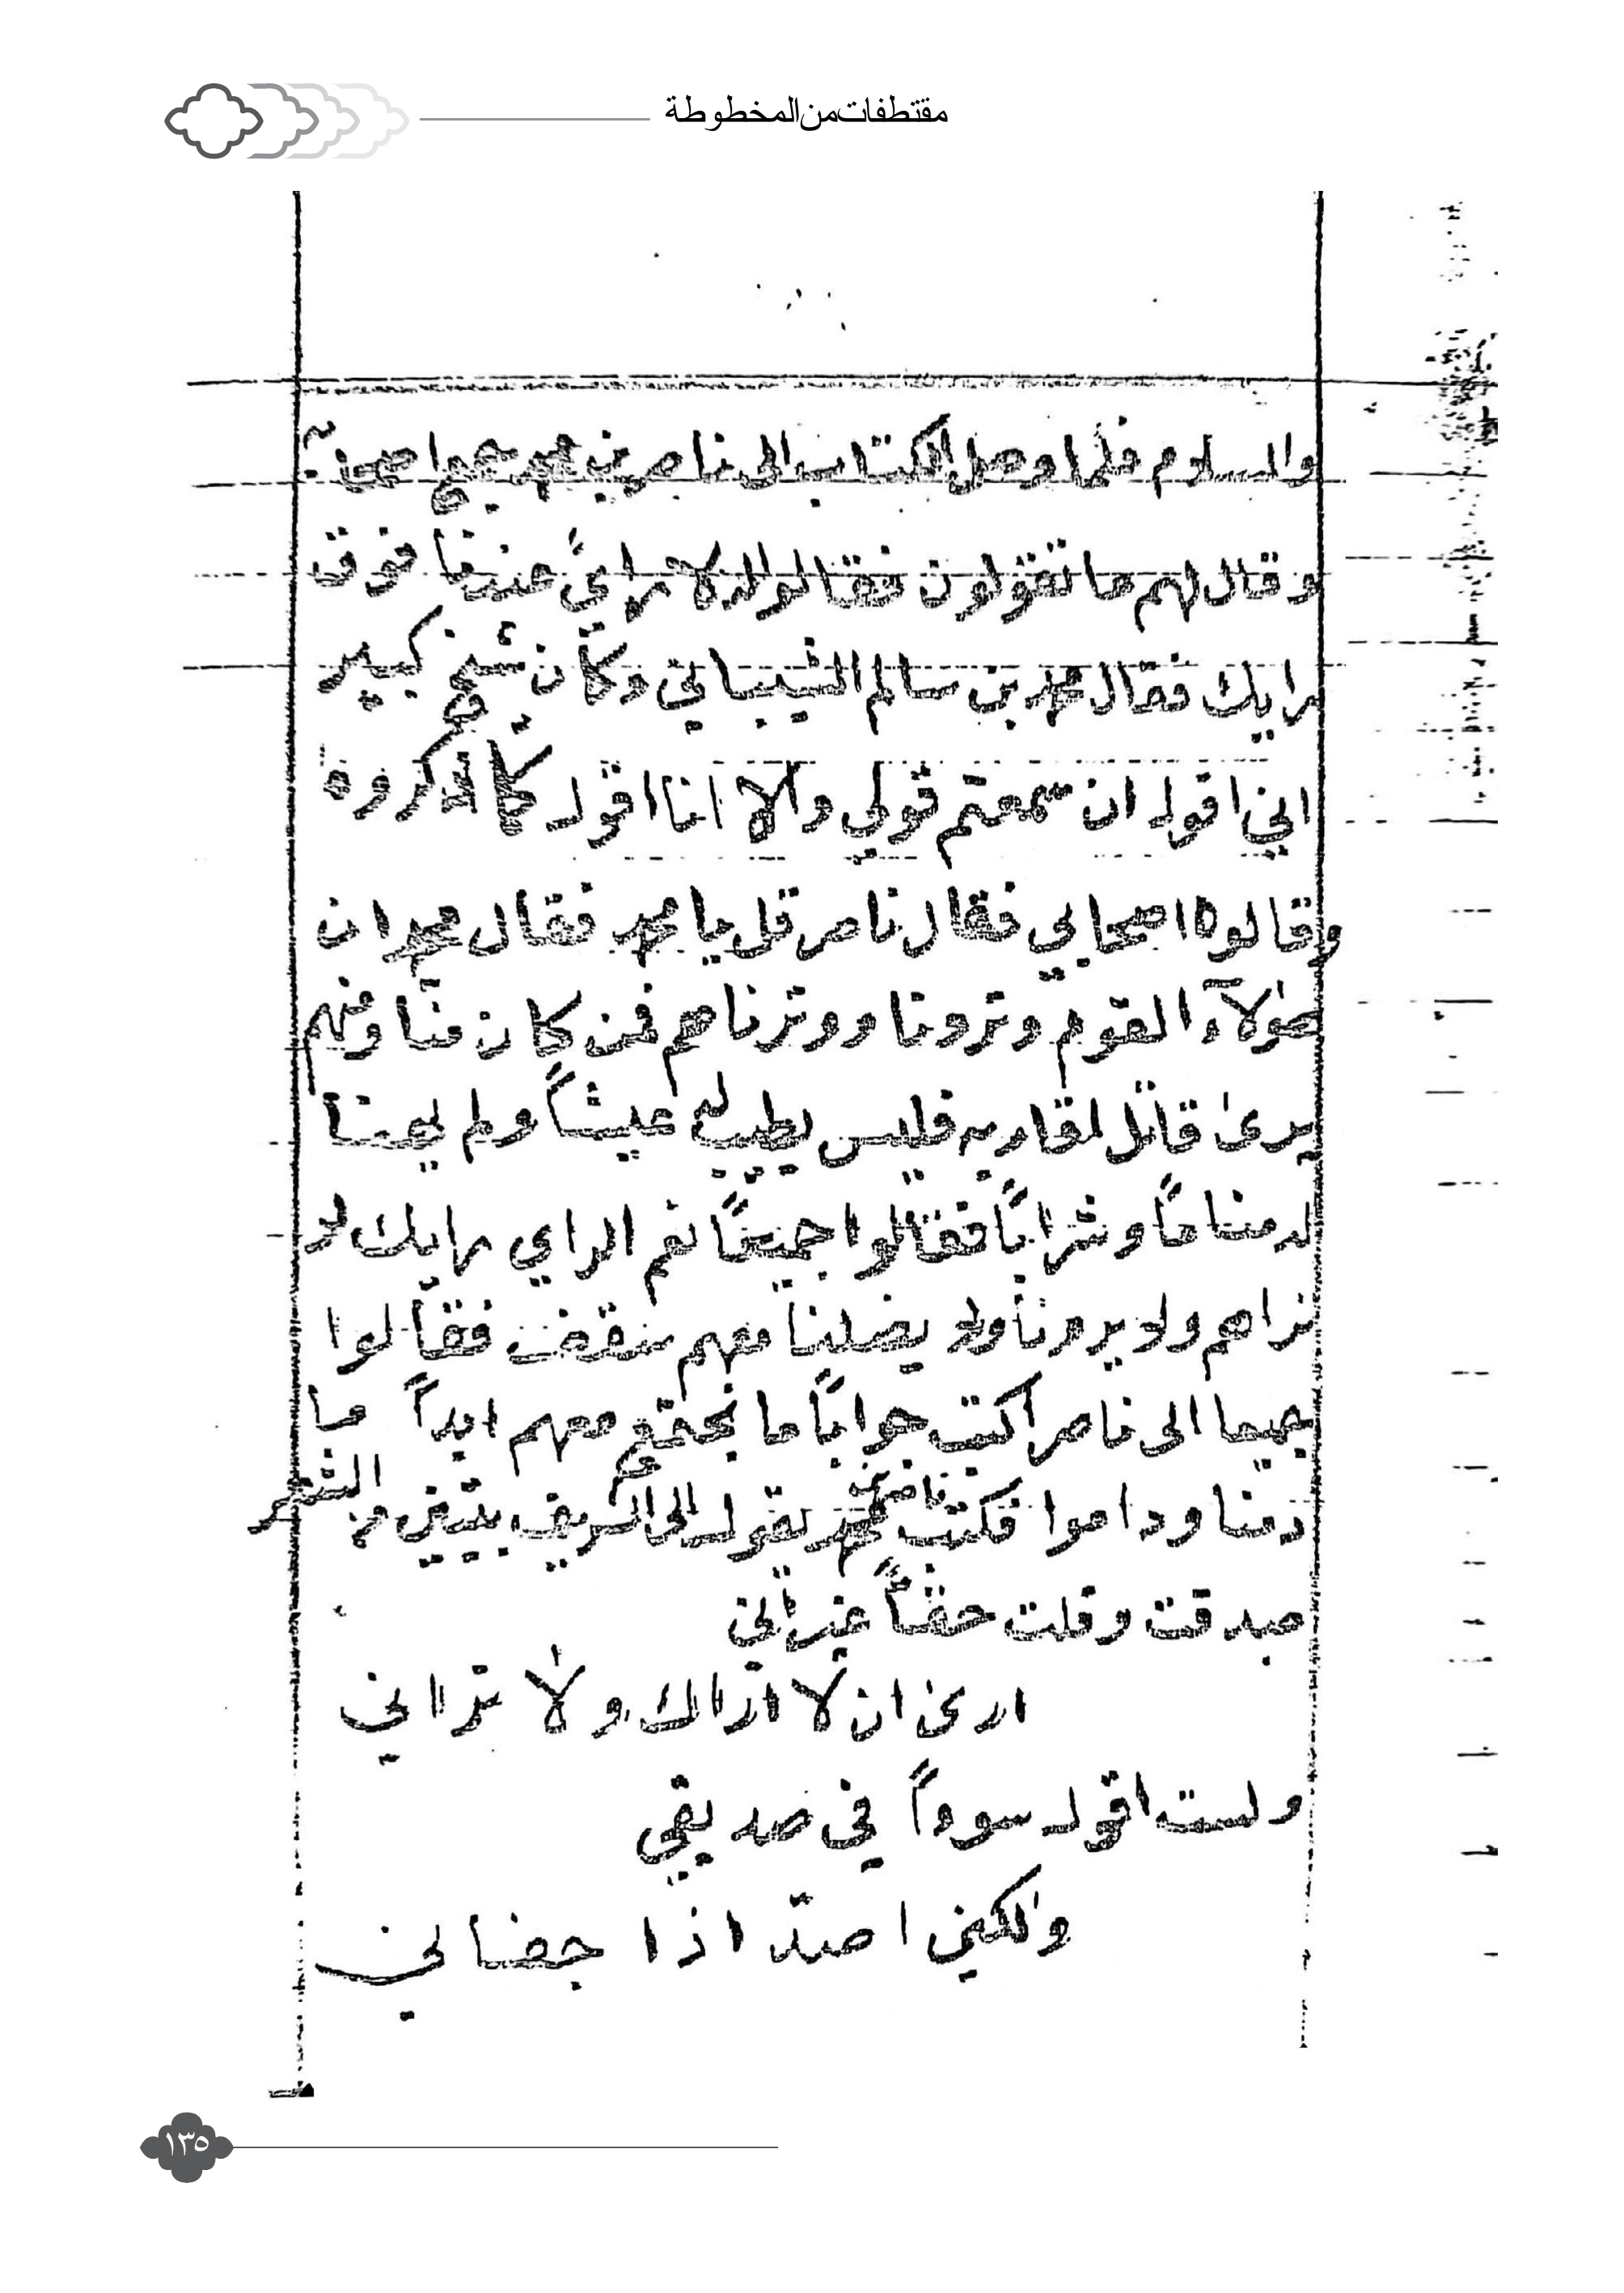 مقتطفات من المخطوطة
والسلام فلما وصل الكتاب الى ناصر بن محمد جمع اصحابه
وقال لهم ما تقولون فقالوا له لا رايً عندنا فوق
رايك فقال محمد بن سالم الشيباني وكان شيخ كبير
اني اقول ان سمعتم قولي والا انا اقول كما ذكروه
وقالوه اصحابي فقال ناصر قل يا محمد فقال محمد ان
هؤلآء القوم وترونا ووترناهم فمن كان منا ومنهم
يرى قاتل لقاربه فليس يطيب له عيشاً ولم يهنا
له مناماً وشراباً فقالوا جميعًا نعم الراي رايك لا
نراهم ولا يرونا ولا يضلنا معهم سقف فقالوا
جميعا الى ناصر اكتب جواباً ما نجتمع معهم ابداً ما
دمنا وداموا فكتب ناصر بن محمد يقول الى الشريف بيتين من الشعر
صدقت وقلت حقاً غير اني
ارى ان لا اراك ولا تراني
ولست اقول سوءاً في صديقي
ولكني اصد اذا جفاني
١٣٥